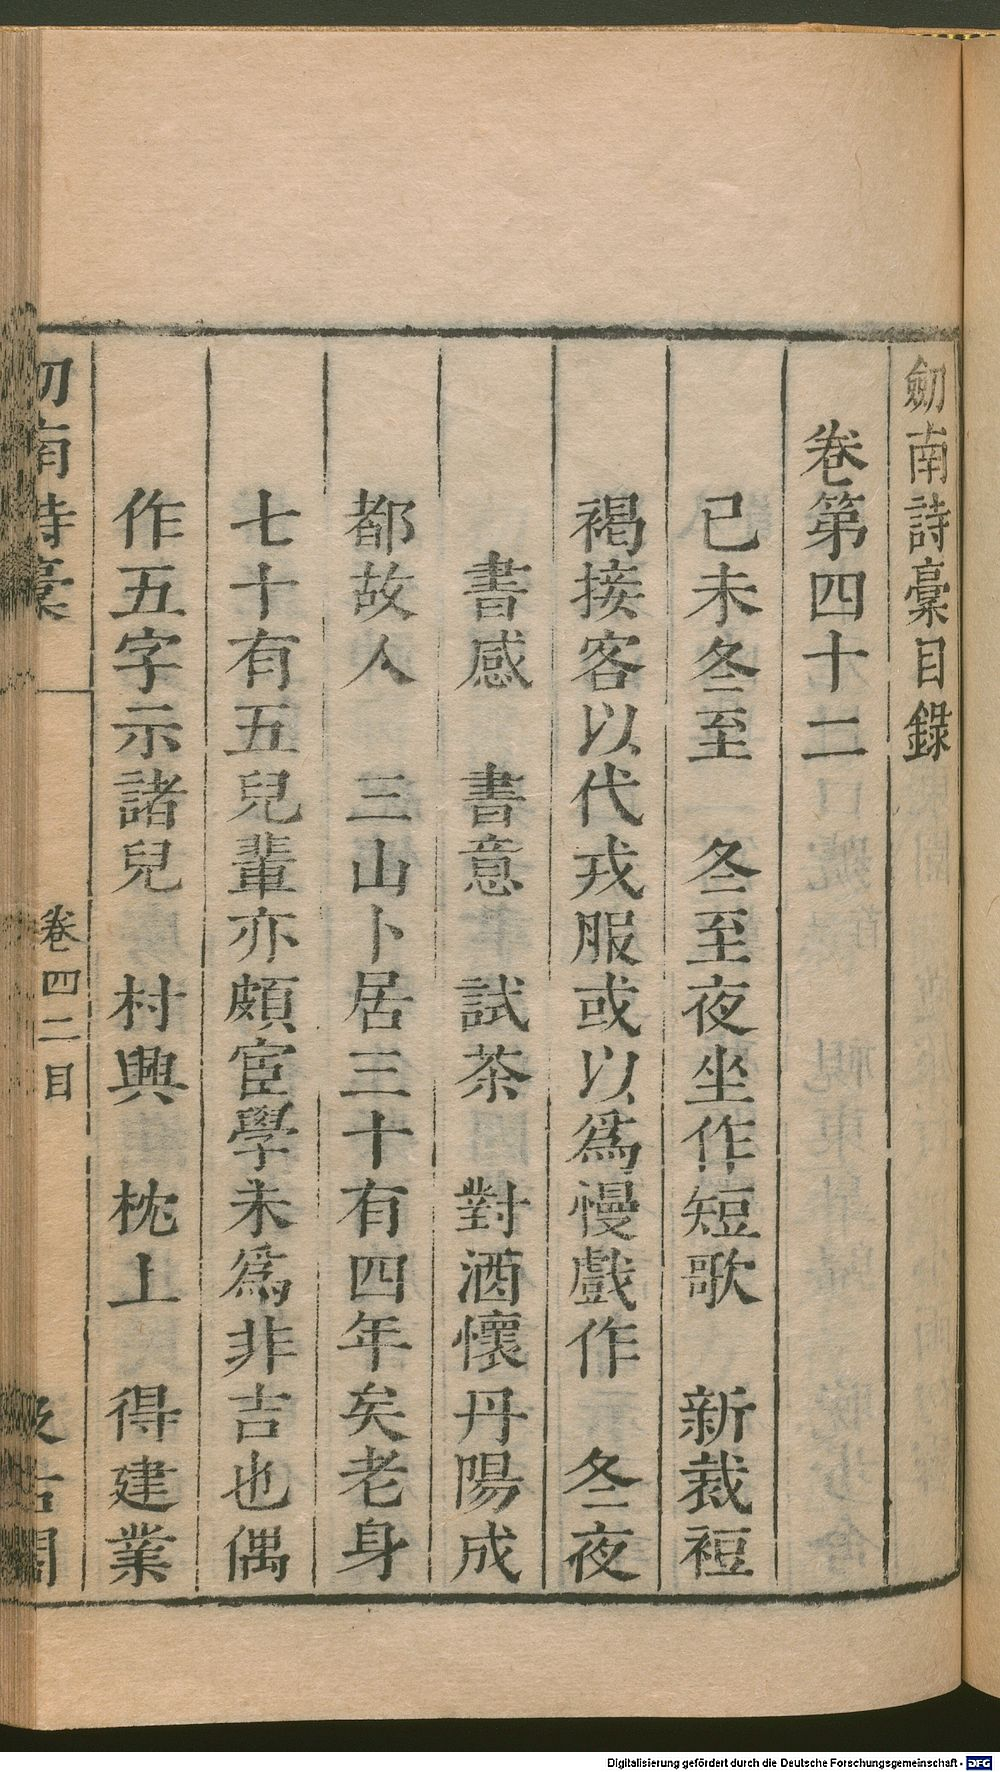 劒南詩稾目錄
卷第四十二
已未冬至 冬至夜坐作短歌 新裁裋
褐接客以代戎服或以爲慢戲作 冬夜
書感 書意 試茶 對酒懷丹陽成
都故人 三山卜居三十有四年矣老身
七十有五兒輩亦頗宦學未爲非吉也偶
作五字示諸兒 村興 枕上 得建業
劒南詩稾 卷四二目 汲古閣
Digitalisierung gefördert durch die Deutsche Forschungsgemeinschaft - DFG